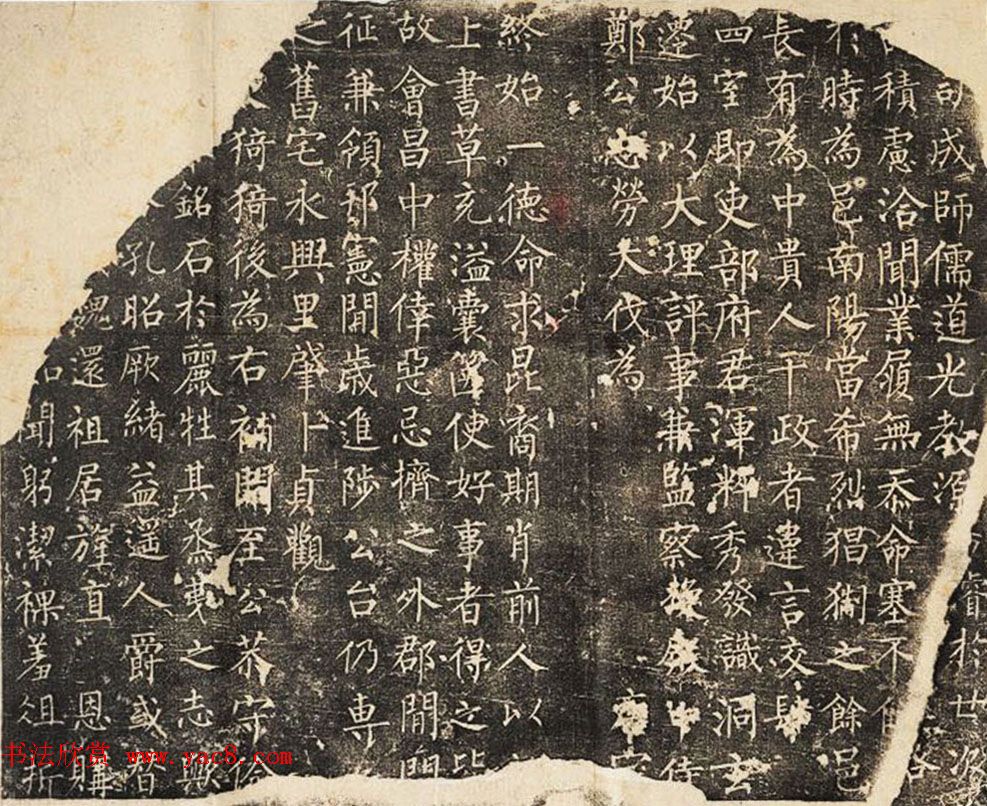 司成師儒道光教源 睿於世
積慮洽聞業履無忝命塞不
時為邑南陽當希烈猖獗之餘邑
長有為中貴人干政者違言交肆
四室即吏部府君渾粹秀發識洞玄
遷始以大理評事兼監察 殿中侍
鄭公忠勞大伐為
終始一德命求昆裔期肖前人以
上書草充溢囊篋使好事者得之比
故會昌中權倖惡忌擠之外郡間
征兼領邦憲開歲進陟公台仍専
之舊宅永興里肇卜貞觀
猗猗後為右補闕至公恭守儉
銘石於麗牲其烝彝之志歟
孔昭厥緒益遥人爵或替
還祖居旌直 恩購
聞躬潔祼羞俎
书法欣赏 www.yac8.com